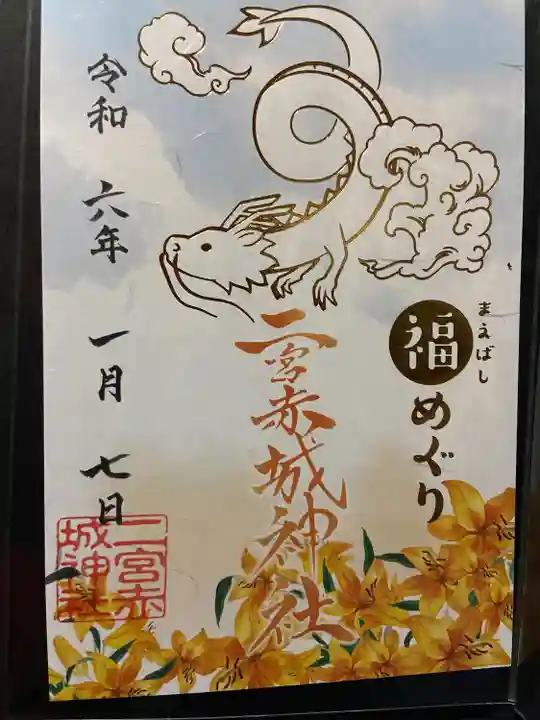 まえばし
福めぐり
二宮赤城神社
令和 六年 一月 七日
二宮赤
城神社